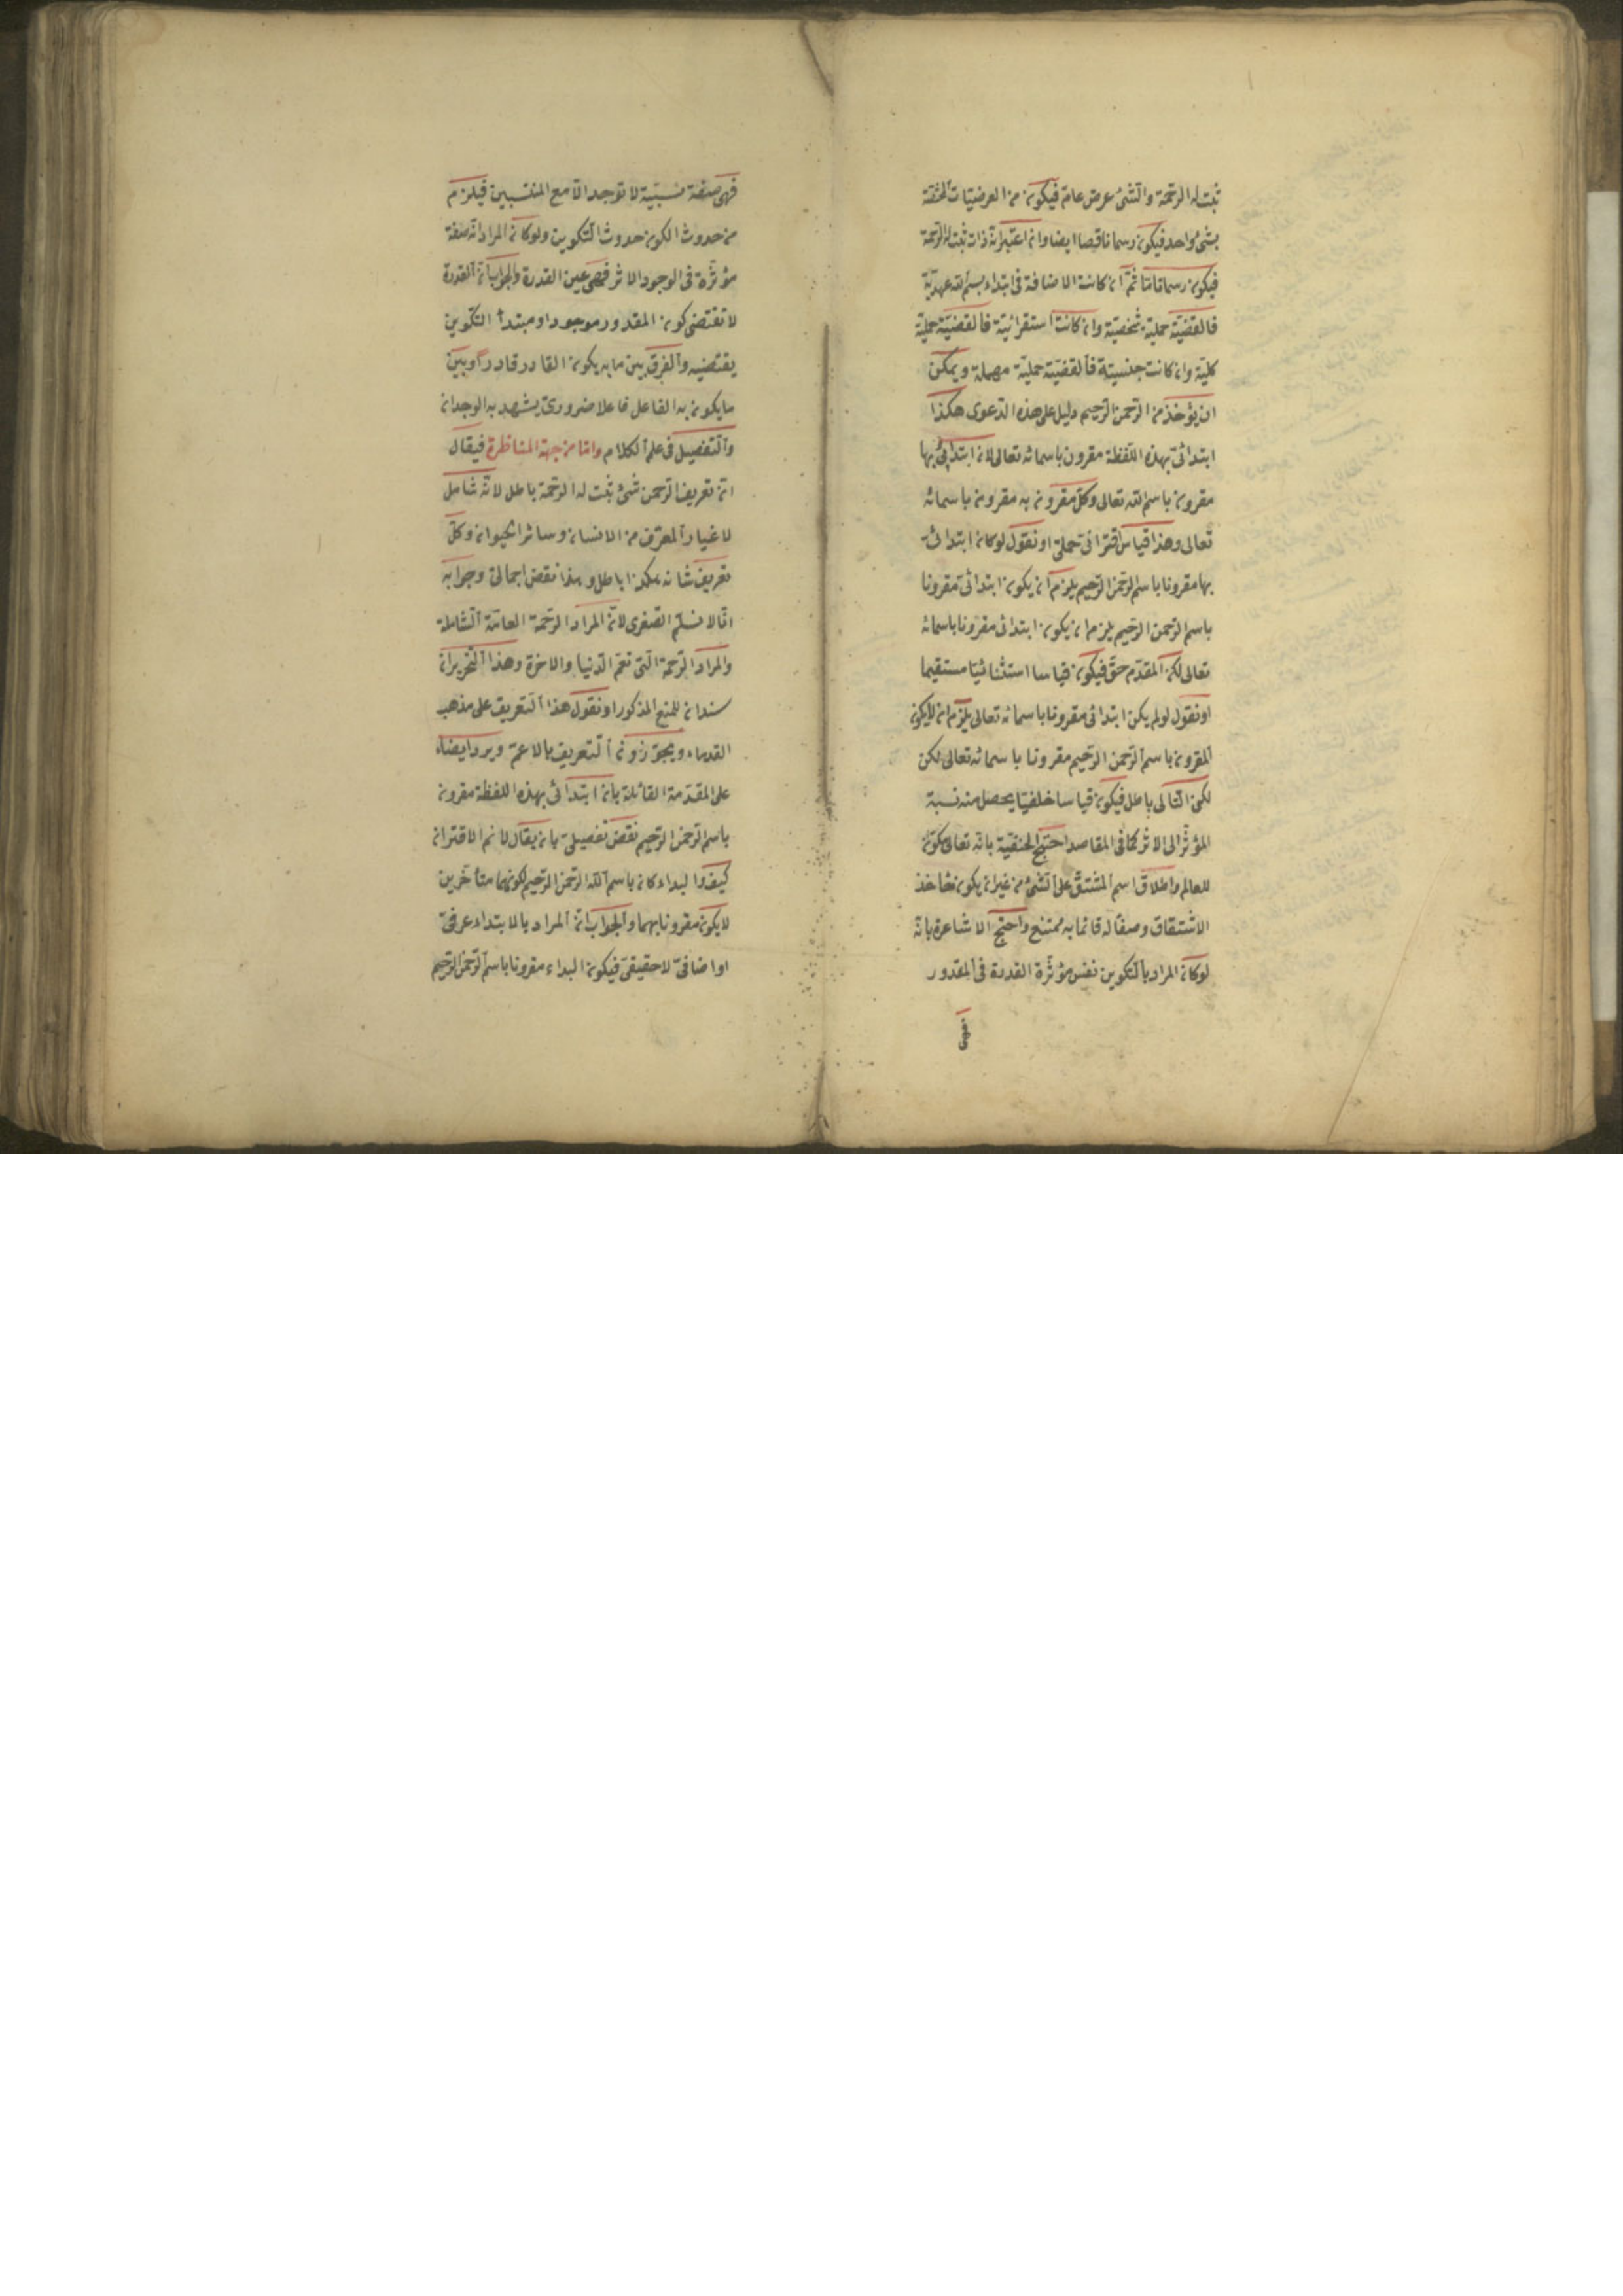 ثبت له الرحمة والشئ عرض عام فيكون من العرضيات المختصة
بشئ واحد فيكون رسما ناقصا ايضا وان اعتبر انه ذات ثبت له الرحمة
فيكون رسما تاما ثم ان كانت الاضافة فى ابتداء بسم الله عهدية
فالقضية حملية شخصية وان كانت استقرائية فالقضية حملية
كلية وان كانت جنسية فالقضية حملية مهملة ويمكن
ان يؤخذ من الرحمن الرحيم دليل على هذه الدعوى هكذا
ابتدائى بهذه اللفظة مقرون باسمائه تعالى لان ابتدائى بها
مقرون باسم الله تعالى وكل مقرون به مقرون باسمائه
تعالى وهذا قياس اقترانى حملى او نقول لو كان ابتدائى
بها مقرونا باسم الرحمن الرحيم يلزم ان يكون ابتدائى مقرونا
باسم الرحمن الرحيم يلزم ان يكون ابتدائى مقرونا باسمائه
تعالى لكن المقدم حق فيكون قياسا استثنائيا مستقيما
او نقول لو لم يكن ابتدائى مقرونا باسمائه تعالى يلزم ان لايكون
المقرون باسم الرحمن الرحيم مقرونا باسمائه تعالى لكن
لكن التالى باطل فيكون قياسا خلفيا يحصل منه نسبة
المؤثر الى الاثر كما فى المقاصد احتج الحنفية بانه تعالى مكون
للعالم واطلاق اسم المشتق على الشئ من غير ان يكون مأخذ
الاشتقاق وصفا له قائما به ممتنع واحتج الاشاعرة بانه
لو كان المراد بالتكوين نفس مؤثرة القدرة فى المقدور
فهى
فهى صفة نسبية لا توجد الا مع المنتسبين فيلزم
من حدوث الكون حدوث التكوين ولو كان المراد انه صفة
مؤثرة فى الوجود الاثر فهى عين القدرة والجواب ان القدرة
لا تقتضى كون المقدور موجودا ومبتدأ التكوين
يقتضيه والفرق بين ما به يكون القادر قادرا وبين
ما يكون به الفاعل فاعلا ضرورى يشهد به الوجدان
والتفصيل فى علم الكلام واما من جهة المناظرة فيقال
ان تعريف الرحمن شئ ثبت له الرحمة باطل لانه شامل
لاغيار المعرف من الانسان وسائر الحيوان وكل
تعريف شانه هكذا باطل وهذا نقض اجمالى وجوابه
انا لا نسلم الصغرى لان المراد الرحمة العامة الشاملة
والمراد الرحمة التى تعم الدنيا والاخرة وهذا التحريران
سندان للمنع المذكور او نقول هذا التعريف على مذهب
القدماء ويجوزون التعريف بالاعم ويرد ايضا
على المقدمة القائلة بان ابتدائى بهذه اللفظة مقرون
باسم الرحمن الرحيم نقض تفصيلى بان يقال لانم الاقتران
كيف والبداء كان باسم الله الرحمن الرحيم لكونهما متأخرين
لا يكون مقرونا بهما والجواب ان المراد بالابتداء عرفى
او اضافى لا حقيقى فيكون البداء مقرونا باسم الرحمن الرحيم